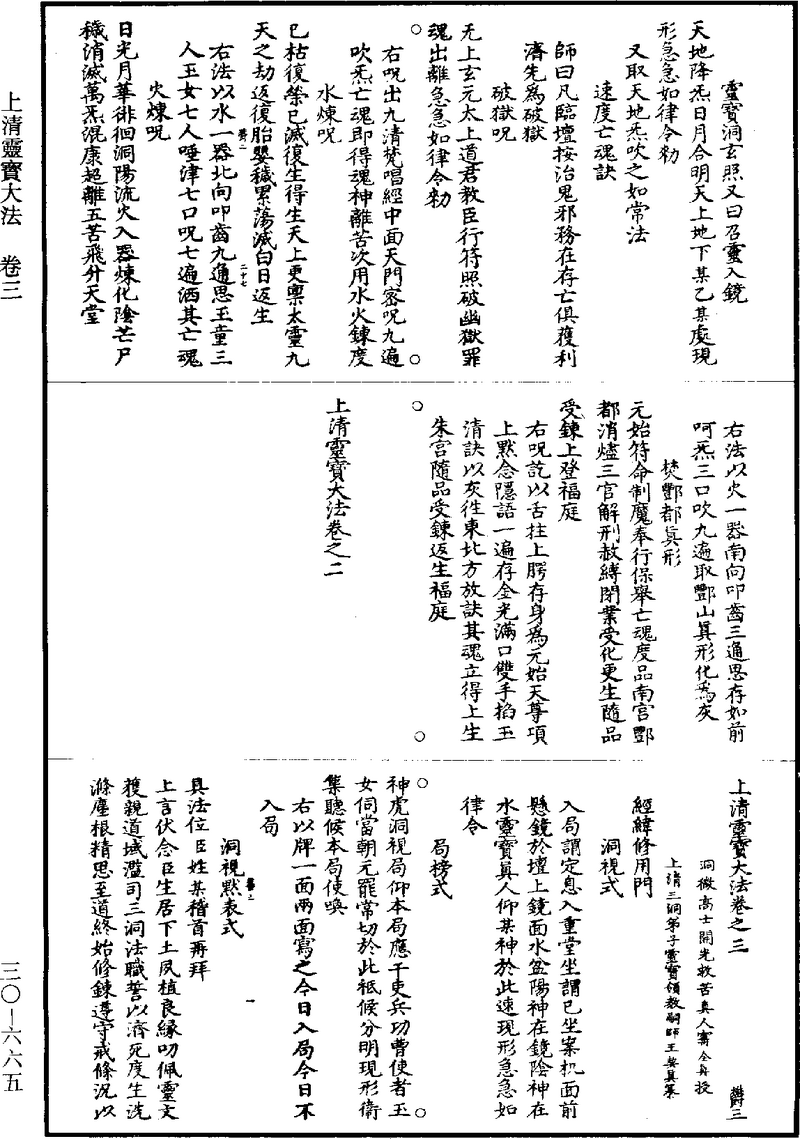 靈寶洞玄照又曰召靈入鏡
天地降炁日月合明天上地下某乙某處現
形急急如律令勑
又取天地炁吹之如常法
速度亡魂訣
師曰凡臨壇按治鬼邪務在存亡俱獲利
濟先為破獄
破獄呪
无上玄元太上道君教臣行符照破幽獄罪
魂出離急急如律令勑
右呪出九清梵唱經中面天門密呪九遍
吹炁亡魂即得魂神離苦次用水火鍊度
水煉呪
已枯復榮已滅復生得生天上更稟太靈九
天之劫返復胎嬰穢累蕩滅白日返生
右法以水一器北向叩齒九通思玉童三
人玉女七人唾津七口呪七遍洒其亡魂
火煉呪
日光月華徘徊洞陽流火入器煉化陰芒尸
穢消滅萬炁混康超離五苦飛升天堂
右法以火一器南向叩齒三通思存如前
呵炁三口吹九遍取酆山真形化為灰
焚酆都真形
元始符命制魔奉行保舉亡魂度品南宮酆
都消燼三官解刑赦縛閉業受化更生隨品
受鍊上登福庭
右呪訖以舌拄上腭存身為元始天尊項
上默念隱語一遍存金光滿口雙手掐玉
清訣以灰往東北方放訣其魂立得上生
朱宮隨品受鍊返生福庭
上清靈寶大法卷之二
上清靈寶大法卷之三
洞微高士開光救苦真人甯全真授
上清三洞弟子靈寶領教嗣師王契真纂
鬱三
經緯修用門
洞視式
入局謂定息入重堂坐謂已坐案机面前
懸鏡於壇上鏡面水盆陽神在鏡陰神在
水靈寶真人仰某神於此速現形急急如
律令
局榜式
神虎洞視局仰本局應干吏兵功曹使者玉
女伺當朝元罷常切於此祗候分明現形衛
集聽候本局使喚
右以牌一面兩面寫之今日入局今日不
入局
洞視默表式
具法位臣姓某稽首再拜
上言伏念臣生居下土夙植良緣叨佩靈文
獲親道域濫司三洞法職誓以濟死度生洗
滌塵根精思至道終始修鍊遵守戒條況以
上清靈寶大法　卷三
三〇—六六五